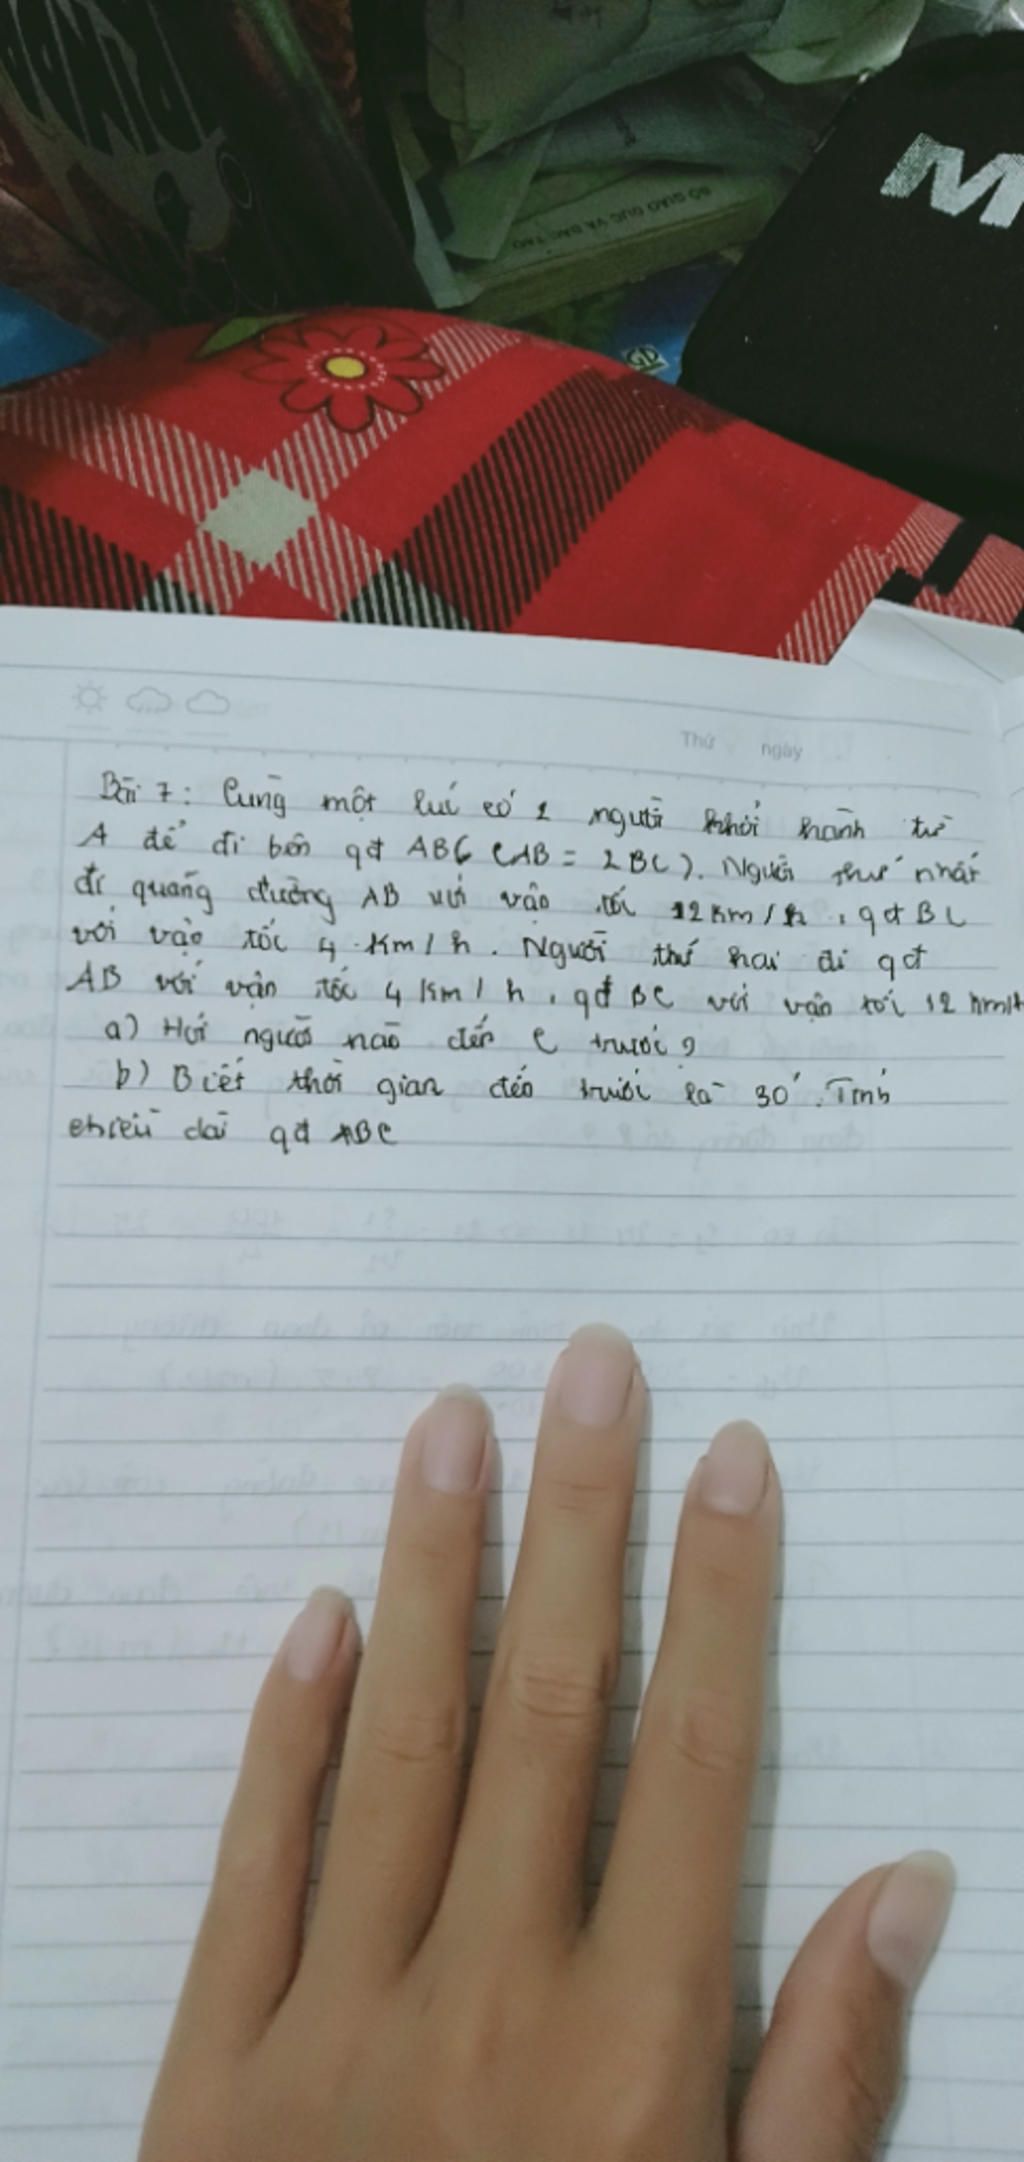 M
BỘ GIÁO DỤC VÀ ĐÀO TẠO
GD
Thứ ngày
Bài 7: Cùng một lúc có 2 người khởi hành từ
A để đi bên qđ ABC (AB = 2BC). Người thứ nhất
đi quãng đường AB với vận tốc 12 km/h, qđ BC
với vận tốc 4 km/h. Người thứ hai đi qđ
AB với vận tốc 4 km/h, qđ BC với vận tốc 12 km/h
a) Hỏi người nào đến C trước?
b) Biết thời gian đến trước là 30'. Tính
chiều dài qđ ABC